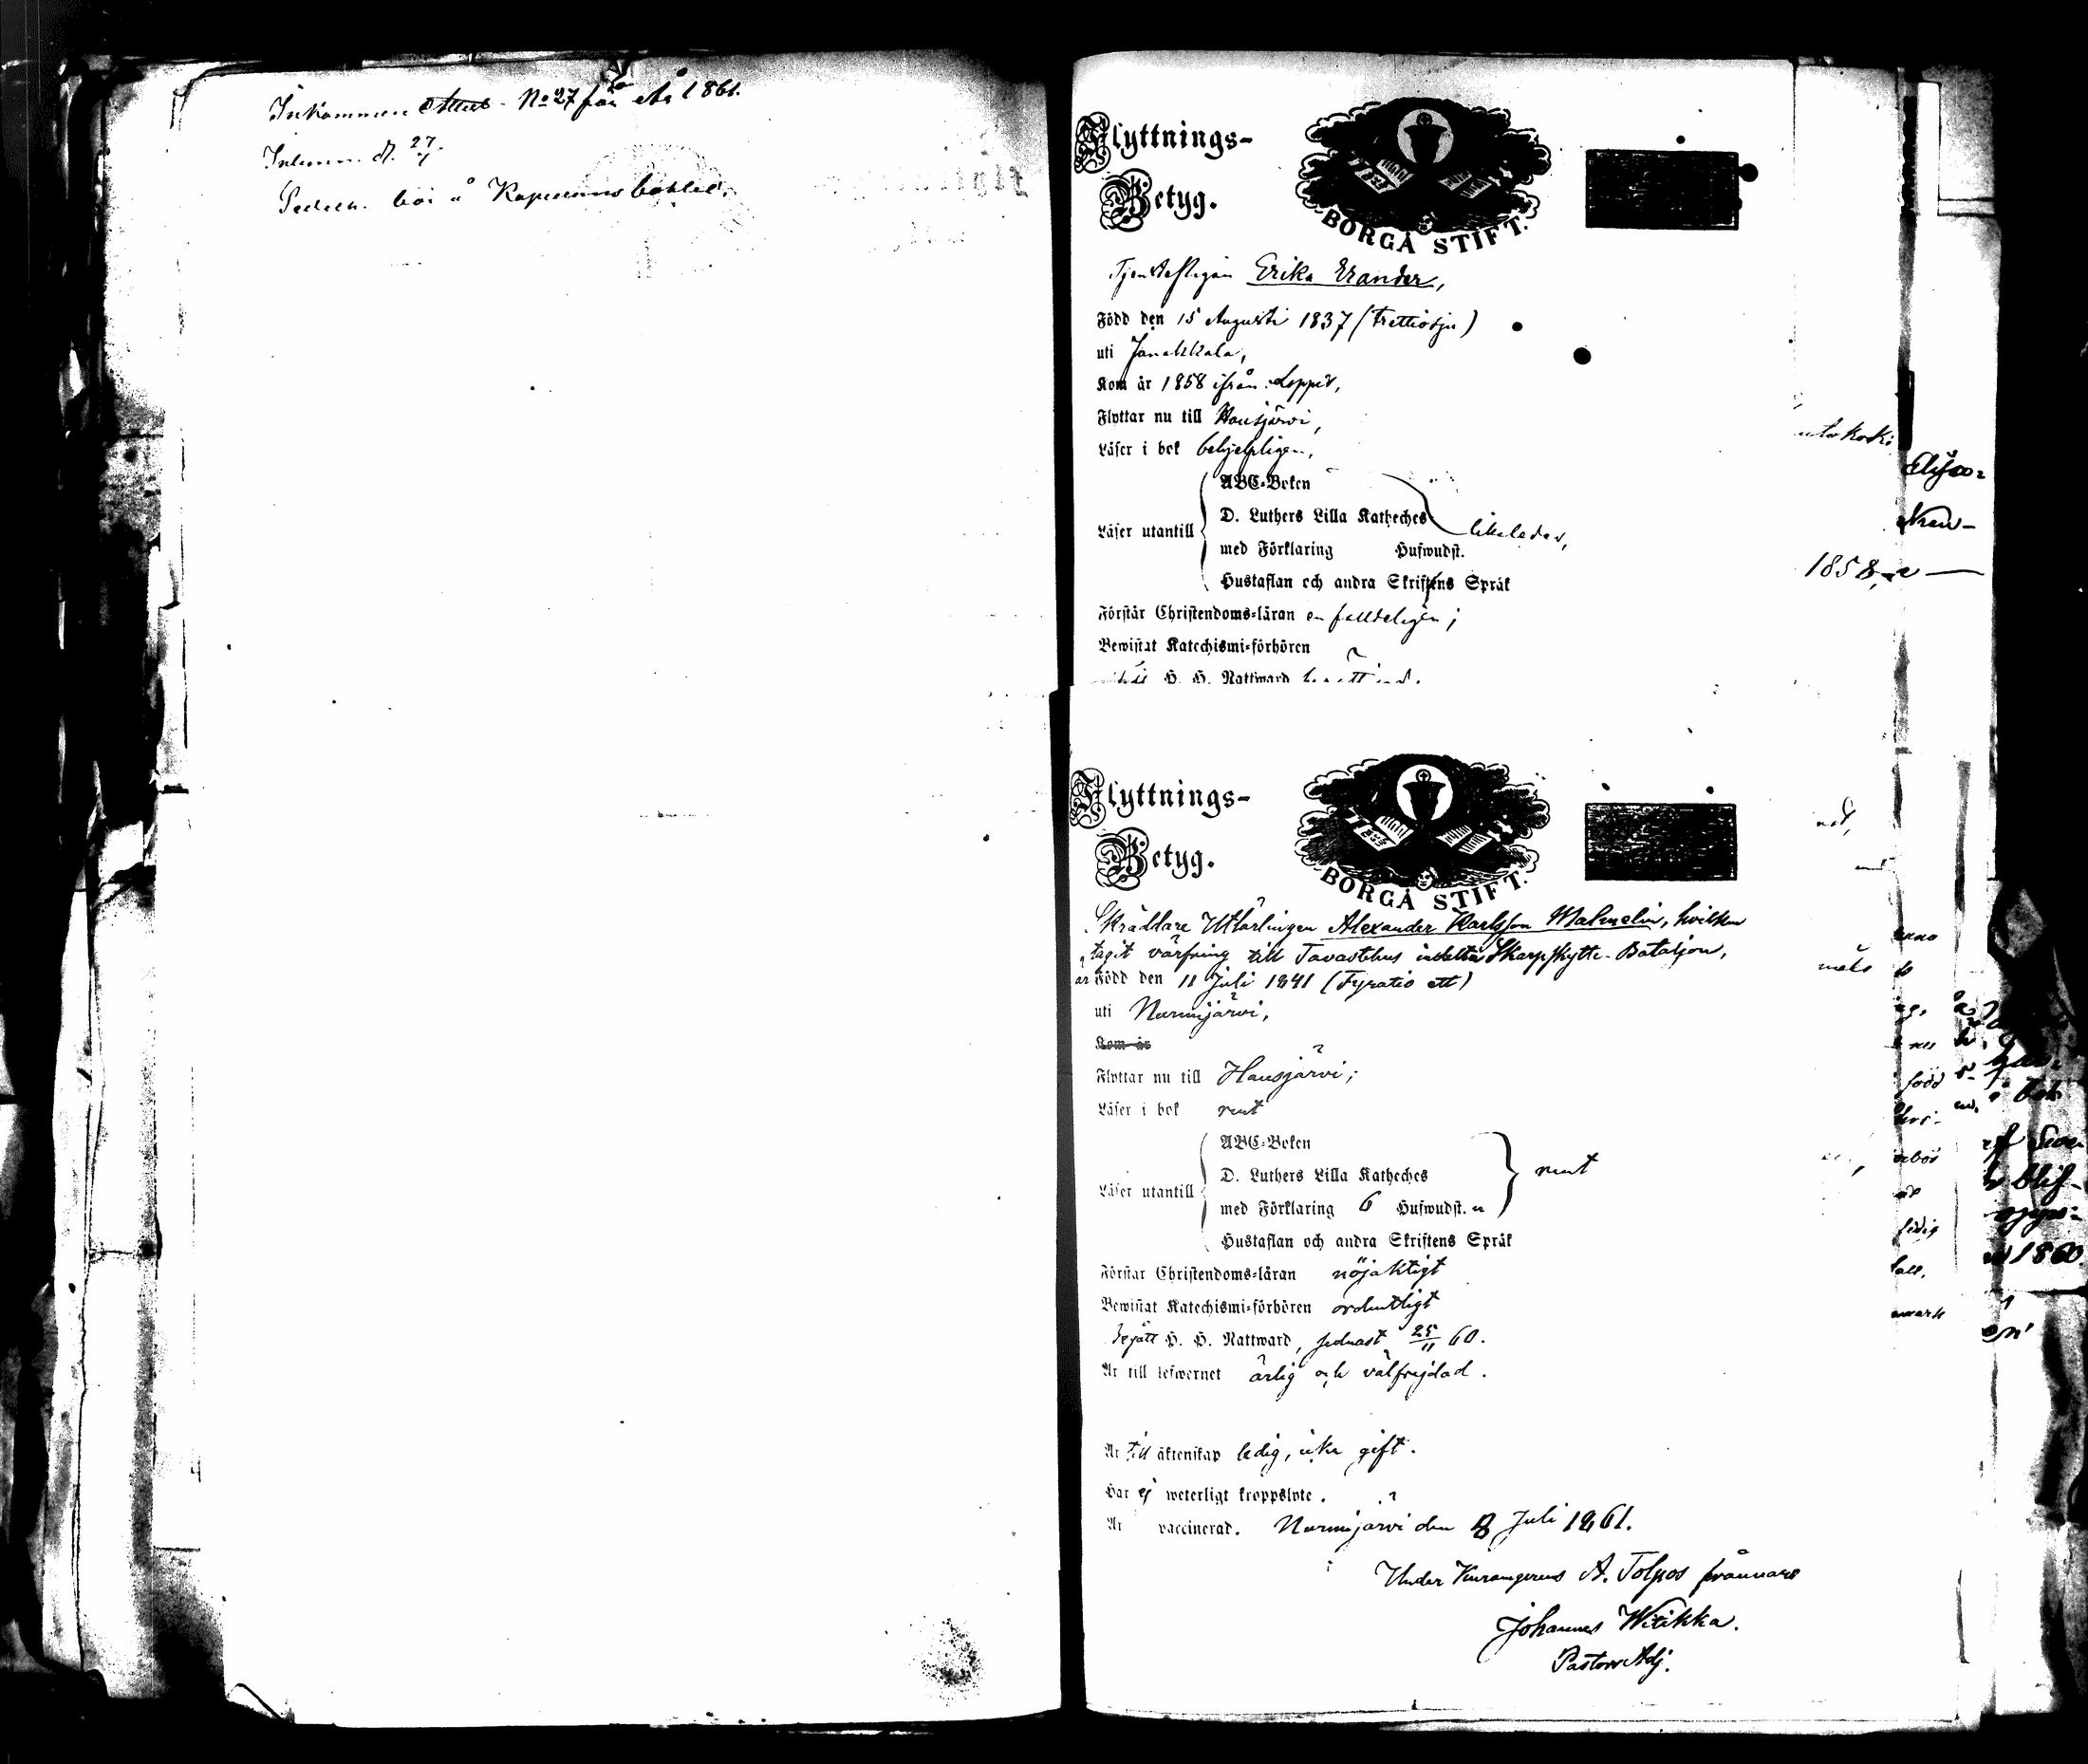 Inkommen Attest No 27 för År 1861.
Inlemn. d. 27/7.
bör å Kapellansbohlet.
Flyttnings-
Betyg.
BORGÅ STIFT.
Tjensteflygan Erika Erander,
Född den 15 Augusti 1837 (trettiosju)
uti Janakkala,
Kom år 1858 ifrån Loppis,
Flyttar nu till Hausjärvi,
Läser i bok behjelpligen,
ABC-Boken
D. Luthers Lilla Katheches
Läser utantill likaledes,
med Förklaring Hufwudst.
Hustaflan och andra Skriftens Språk
Förstår Christendoms-läran enfalldeligen;
Bewistat Katechismi-förhören
H. H. Nattward
utokoski
1858,
Flyttnings-
Betyg.
BORGÅ STIFT.
Skräddare Utlärlingen Alexander Karlsson Malmelin, hvilken
tagit värfning till Tavastehus indelta Skarpskytte-Bataljon,
är Född den 11 Juli 1841 (Fyratio ett)
uti Nurmijärvi,
Kom år
Flyttar nu till Hausjärvi;
Läser i bok rent
ABC-Boken
D. Luthers Lilla Katheches rent
Läser utantill
med Förklaring 6 Hufwudst. u
Hustaflan och andra Skriftens Språk
Förstår Christendoms-läran nöjaktigt
Bewistat Katechismi-förhören ordentligt
Begått H. H. Nattward, sednast 25/11 60.
Är till lefwernet ärlig och välfrejdad.
Är till äktenskap ledig, icke gift.
Har ej weterligt kroppslyte.
Är vaccinerad. Nurmijärvi den 8 Juli 1861.
Under A. Tolpos frånvaro
Johannes Witikka.
Pastors Adj.
född
ledig
1860.